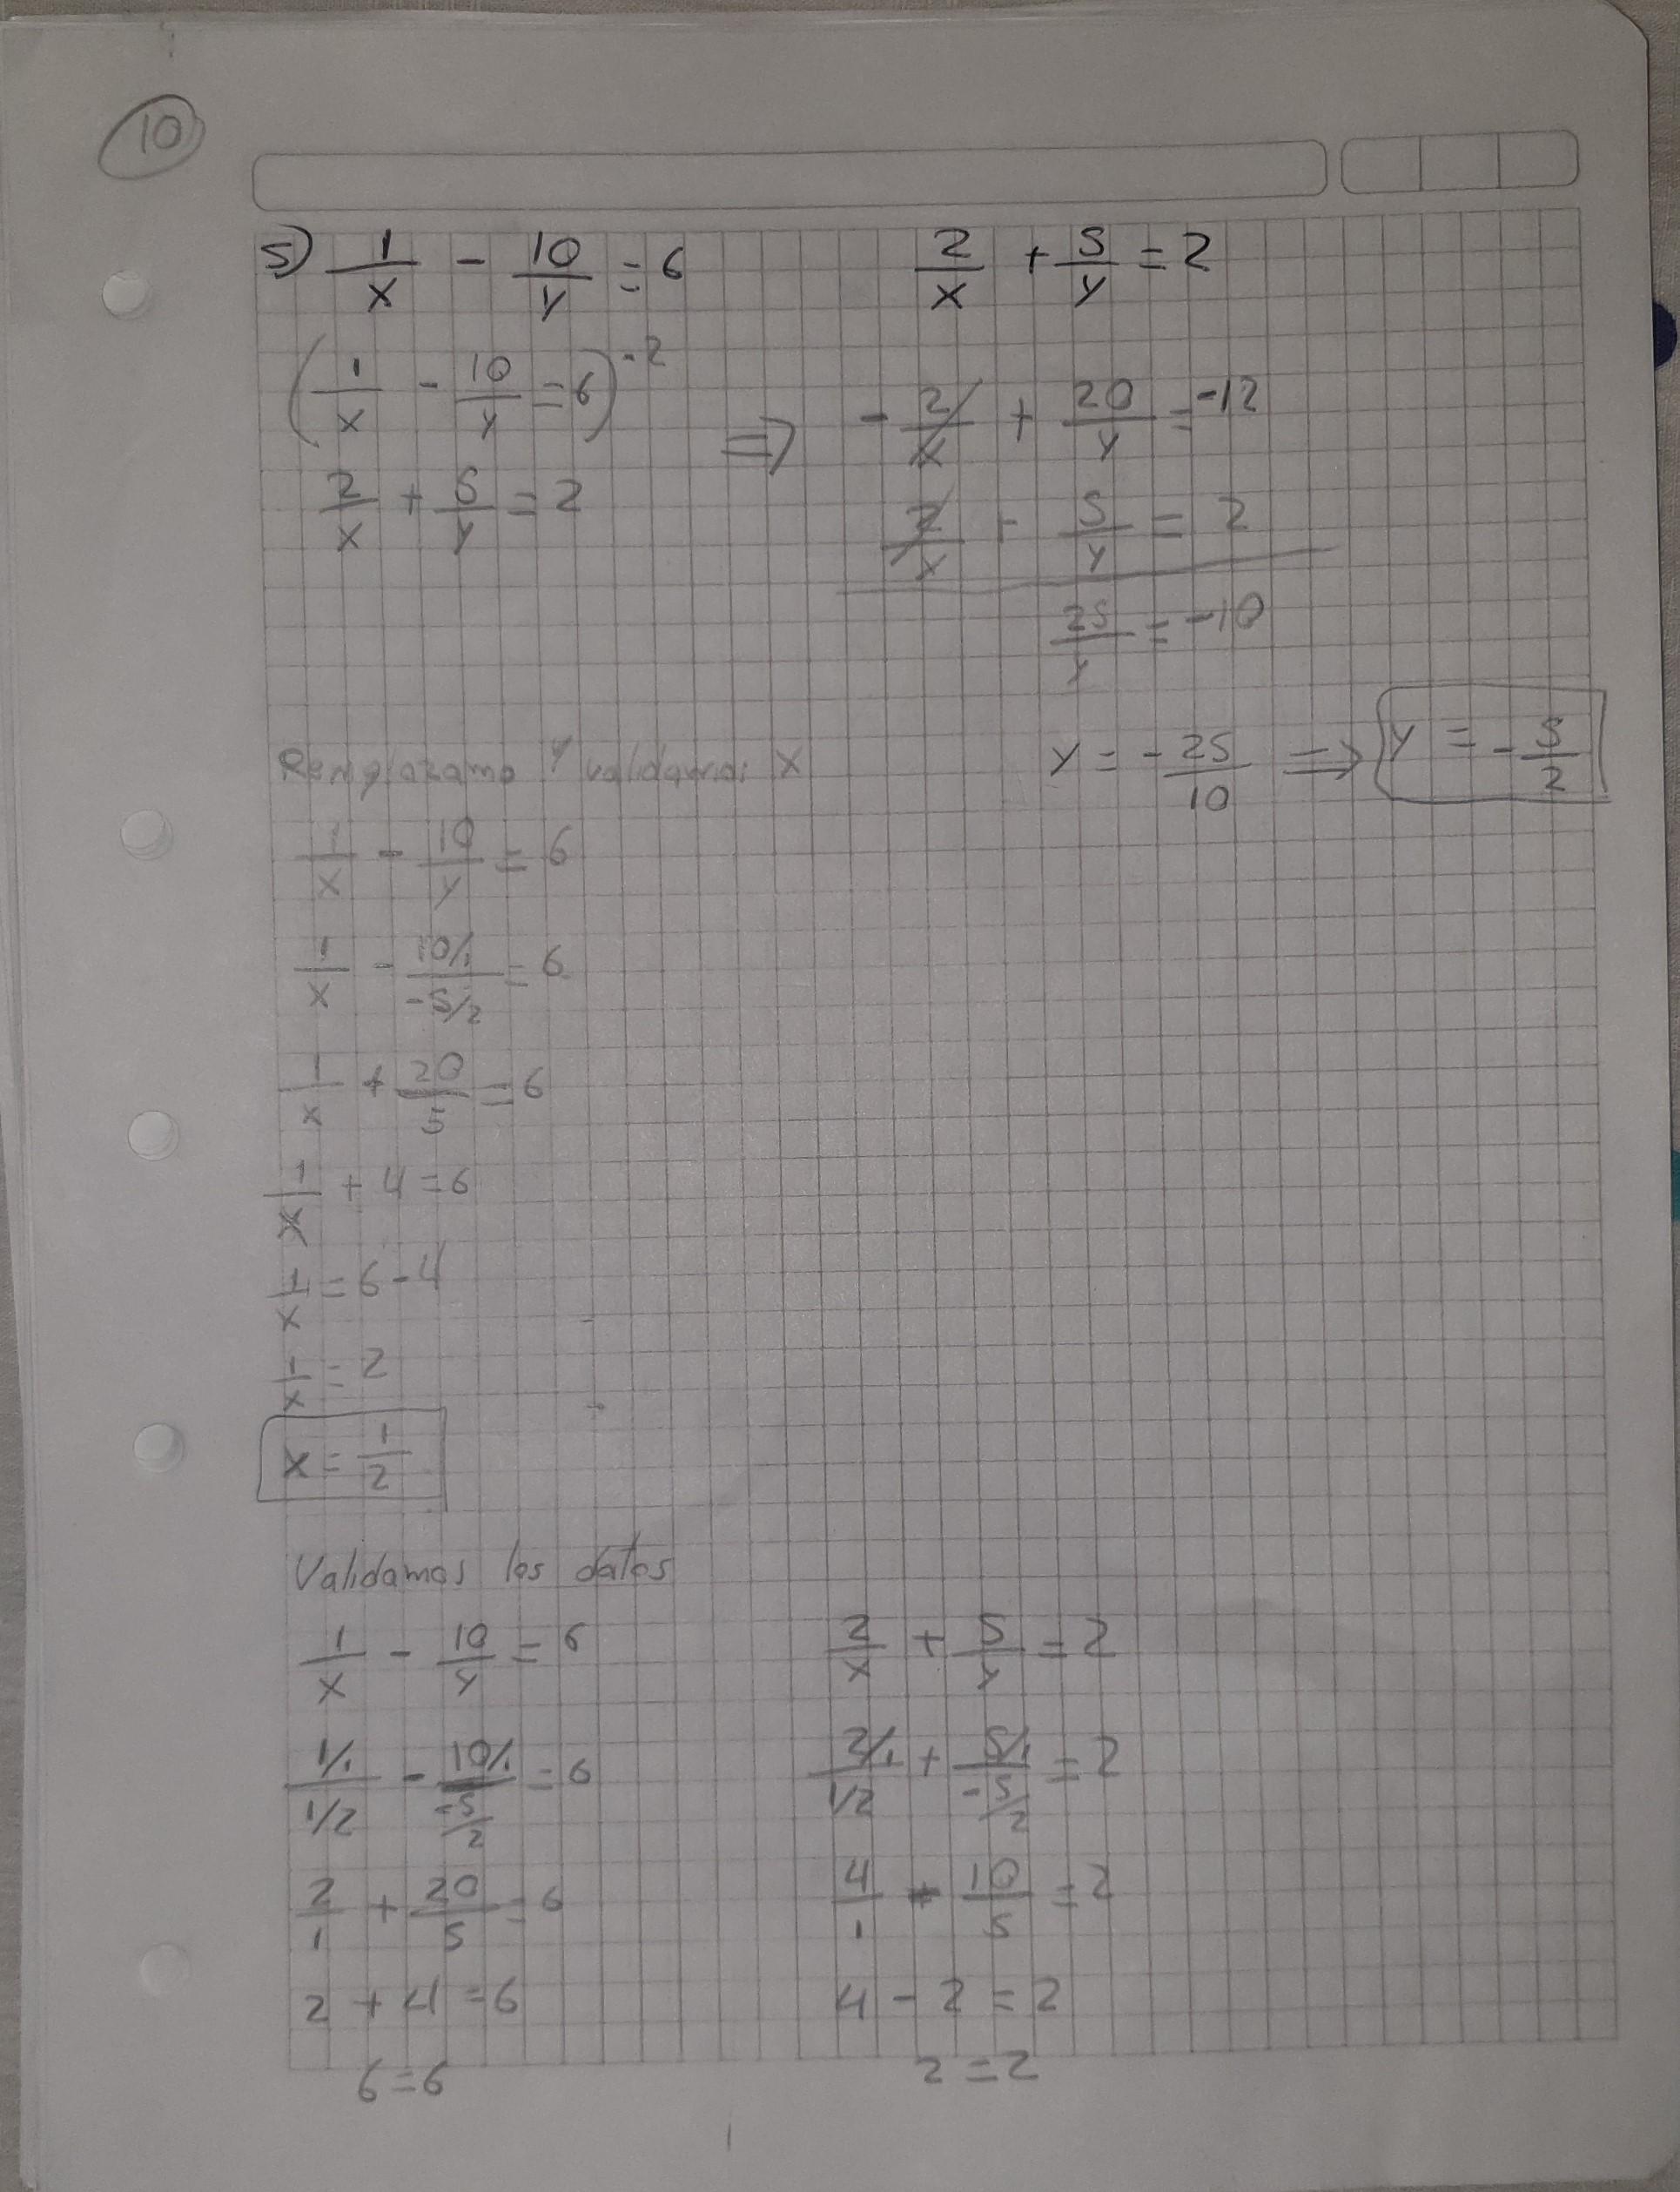 10
5) 1/x - 10/y = 6    2/x + 5/y = 2
(1/x - 10/y = 6)^-2 ⇒ - 2/x + 20/y = -12
2/x + 5/y = 2    2/x - 5/y = 2
25/y = -10
y = - 25/10 ⇒ y = - 5/2
Y validamos X
1/x - 10/y = 6
1/x - (10/1)/(-5/2) = 6
1/x + 20/5 = 6
1/x + 4 = 6
1/x = 6 - 4
1/x = 2
x = 1/2
Validamos los datos
1/x - 10/y = 6    2/x + 5/y = 2
(1/1)/(1/2) - (10/1)/(-5/2) = 6    (2/1)/(1/2) + (5/1)/(-5/2) = 2
2/1 + 20/5 = 6    4/1 - 10/5 = 2
2 + 4 = 6    4 - 2 = 2
6 = 6    2 = 2